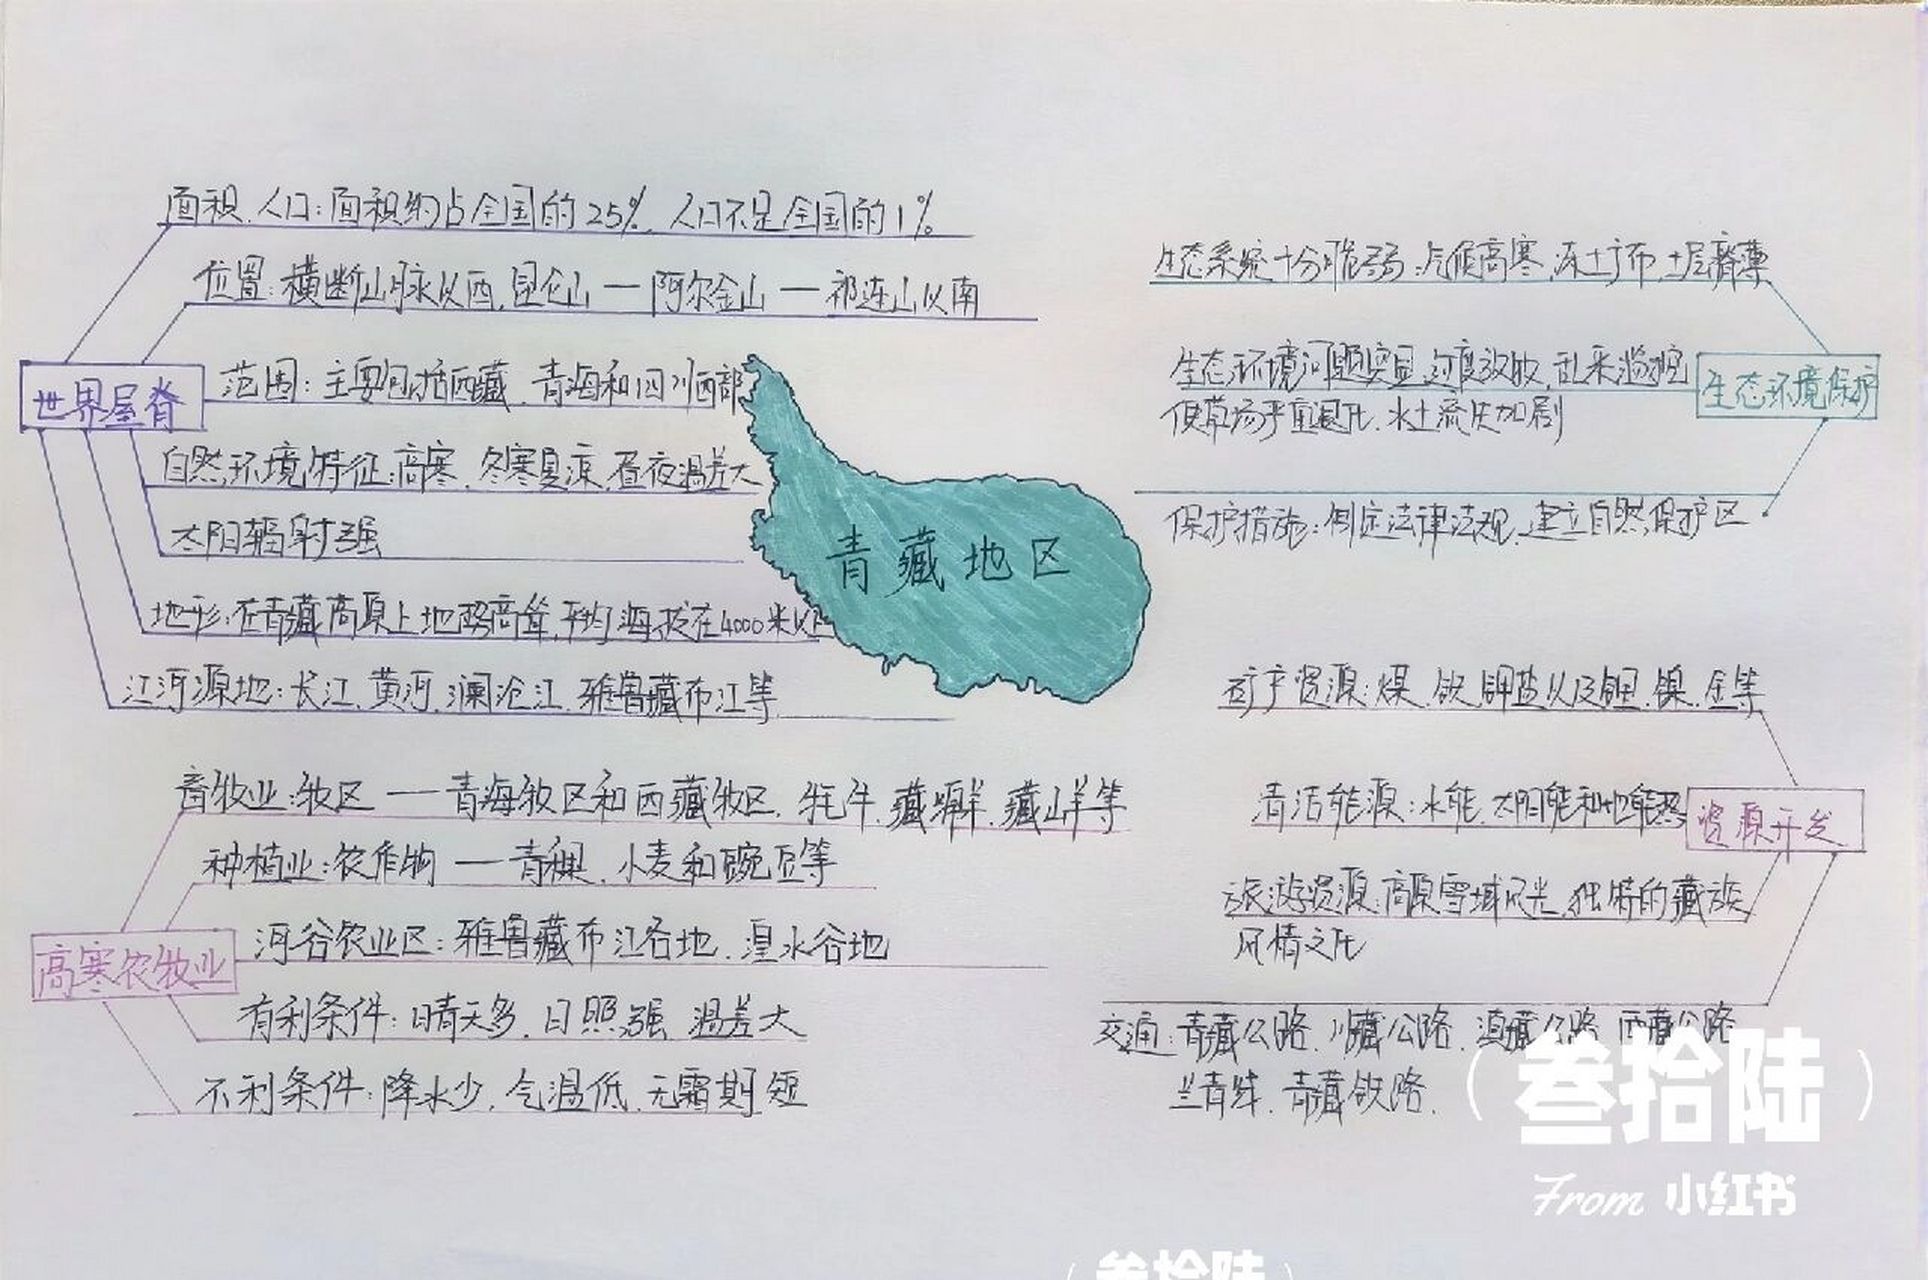 面积、人口：面积约占全国的25%，人口不足全国的1%
位置：横断山脉以西，昆仑山—阿尔金山—祁连山以南
世界屋脊
范围：主要包括西藏、青海和四川西部
自然环境特征：高寒、冬寒夏凉，昼夜温差大
太阳辐射强
地形：在青藏高原上地势高耸，平均海拔在4000米以
江河源地：长江、黄河、澜沧江、雅鲁藏布江等
青藏地区
畜牧业：牧区—青海牧区和西藏牧区，牦牛、藏绵羊、藏山羊等
种植业：农作物—青稞、小麦和豌豆等
高寒农牧业
河谷农业区：雅鲁藏布江谷地、湟水谷地
有利条件：晴天多，日照强 温差大
不利条件：降水少，气温低，无霜期短
生态系统十分脆弱：气候高寒，冻土广布 土层瘠薄
生态环境问题突显 过度放牧，乱采滥挖
生态环境保护
使草场严重退化、水土流失加剧
保护措施：制定法律法规，建立自然保护区
矿产资源：煤、铁、钾盐以及锂、镍、金等
清洁能源：水能、太阳能和地热能
资源开发
旅游资源：高原雪域风光，独特的藏族
风情文化
交通：青藏公路、川藏公路、滇藏公路 西藏公路
兰青线、青藏铁路、
（叁拾陆）
From 小红书
（叁拾陆）